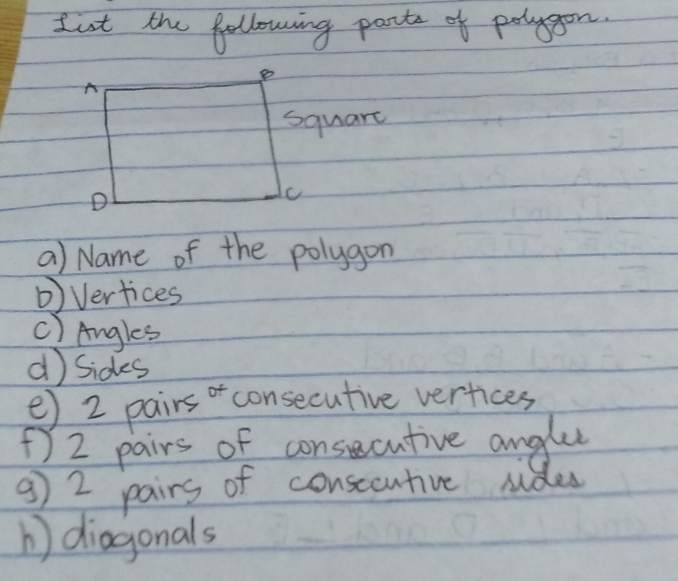 List the following parts of polygon.
A B
square
D C
a) Name of the polygon
b) Vertices
c) Angles
d) Sides
e) 2 pairs of consecutive vertices
f) 2 pairs of consecutive angles
g) 2 pairs of consecutive sides
h) diagonals